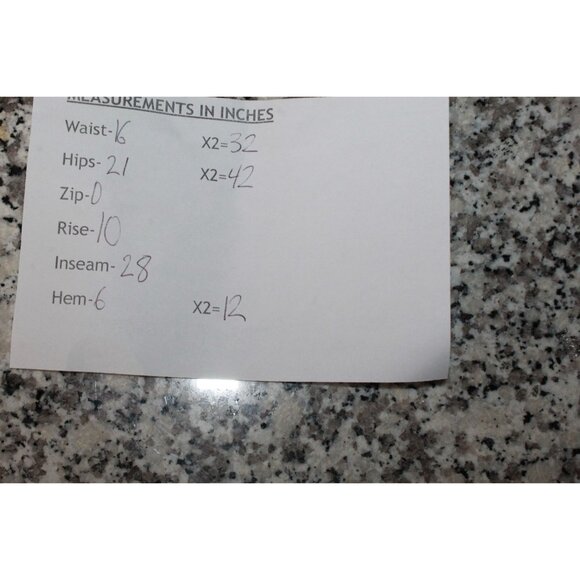 MEASUREMENTS IN INCHES
Waist-16 X2=32
Hips-21 X2=42
Zip-0
Rise-10
Inseam-28
Hem-6 X2=12